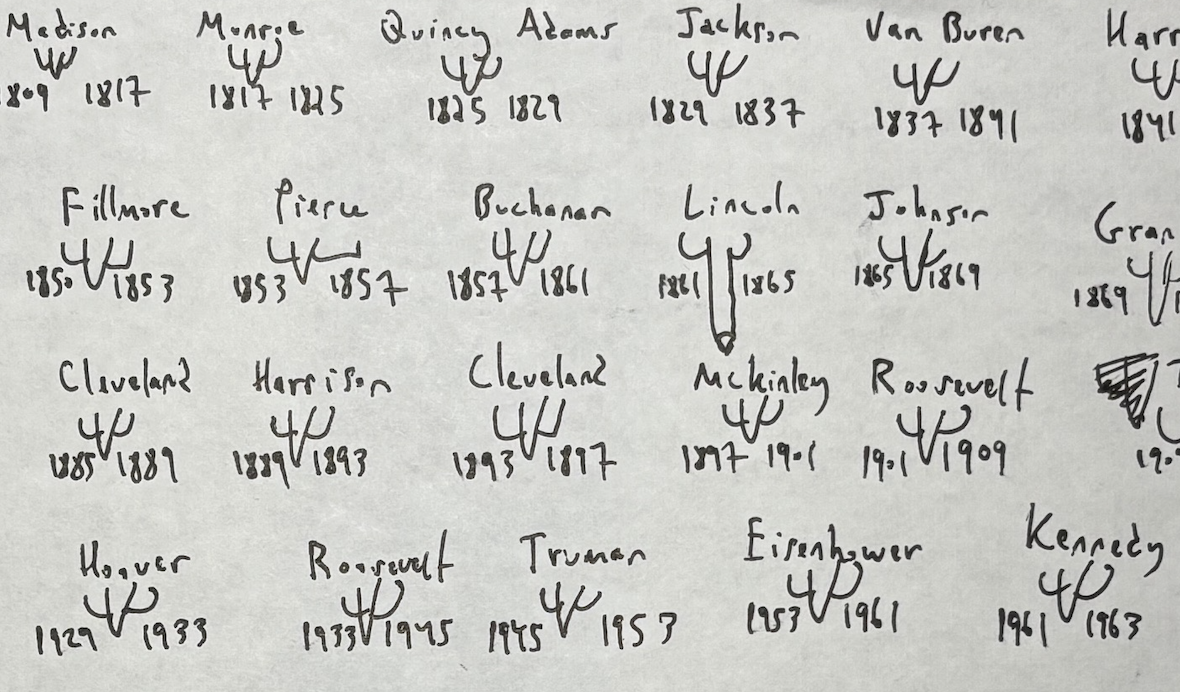 Madison Monroe Quincy Adams Jackson Van Buren Harr
1809 1817 1817 1825 1825 1829 1829 1837 1837 1841 1841
Fillmore Pierce Buchanan Lincoln Johnson Gran
1850 1853 1853 1857 1857 1861 1861 1865 1865 1869 1869
Cleveland Harrison Cleveland McKinley Roosevelt
1885 1889 1889 1893 1893 1897 1897 1901 1901 1909 190
Hoover Roosevelt Truman Eisenhower Kennedy
1929 1933 1933 1945 1945 1953 1953 1961 1961 1963